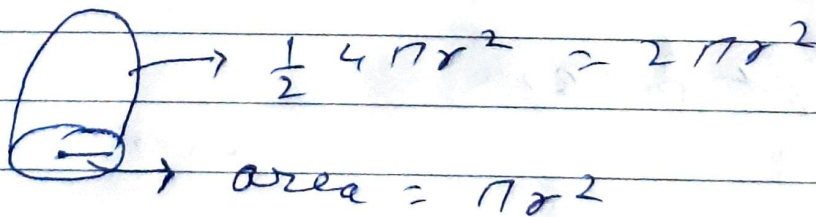 → 1/2 4πr² = 2πr²
→ area = πr²